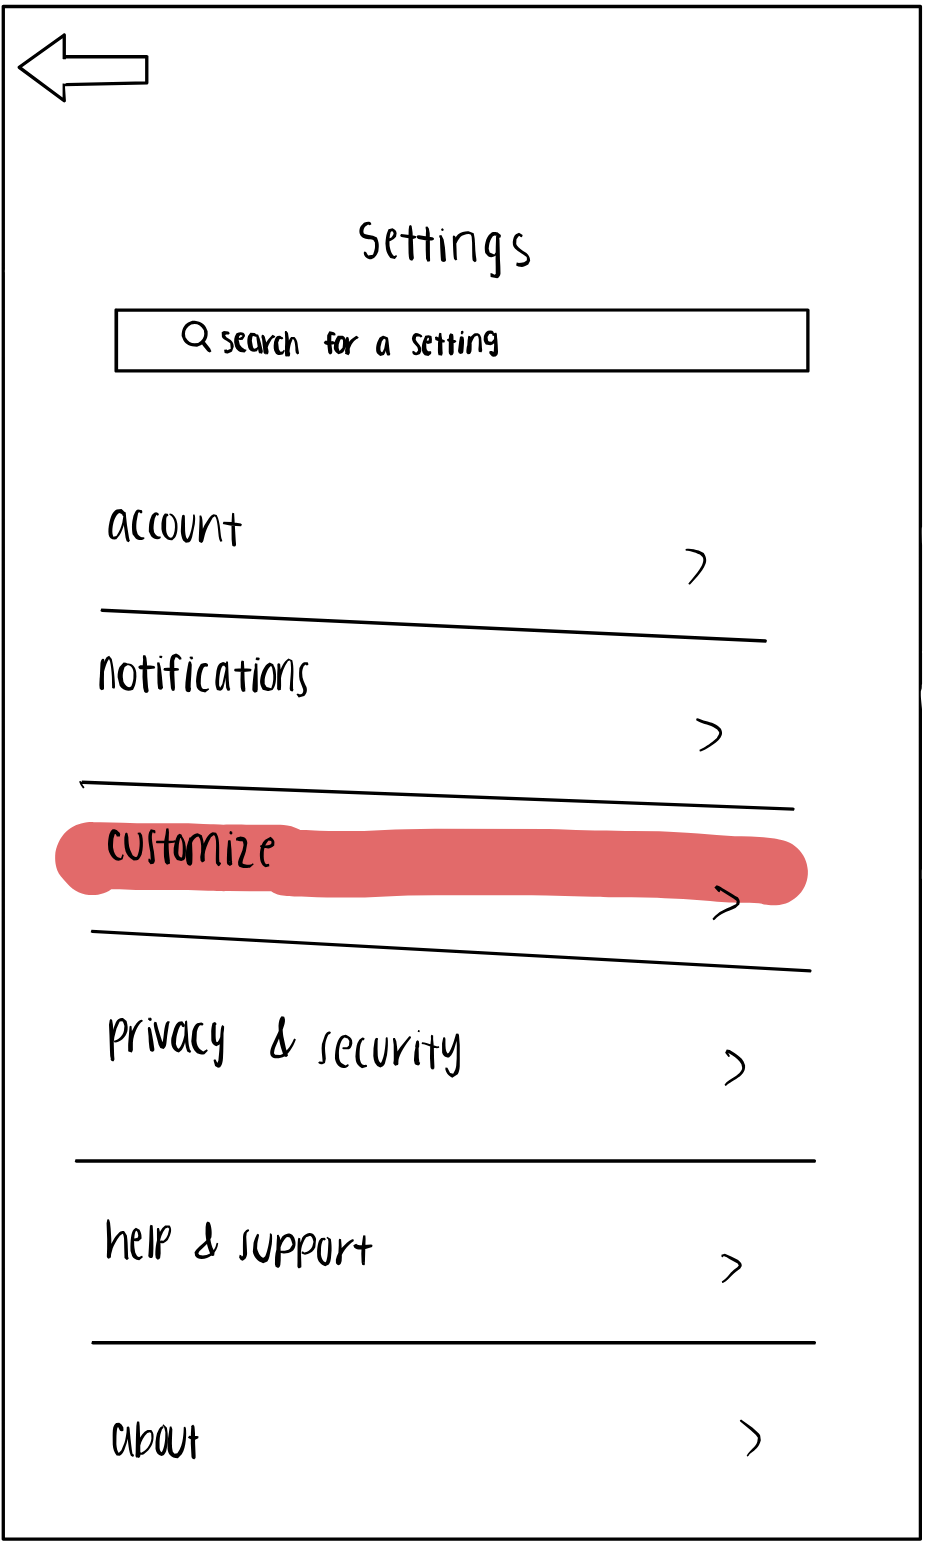 Settings
search for a setting
account
notifications
customize
privacy & security
help & support
about